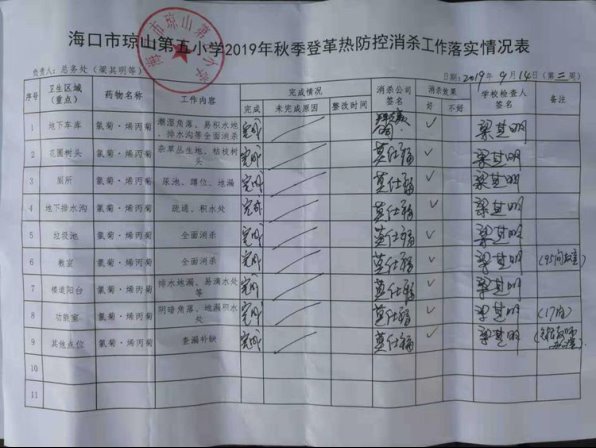 海口市琼山第五小学2019年秋季登革热防控消杀工作落实情况表
负责人：总务处（梁其明等） 日期：2019年9月14日（第三周）
序号 卫生区域（重点） 药物名称 工作内容 完成情况 消杀公司签名 消杀效果 学校检查人签名 备注
完成 未完成原因 整改时间 好 不好
1 地下车库 氯菊·烯丙菊 潮湿角落、易积水地、排水沟等全面消杀 完成 ✓ 梁其明
2 花圃树头 氯菊·烯丙菊 杂草丛生地、枯枝树头 完成 莫仕福 ✓ 梁其明
3 厕所 氯菊·烯丙菊 尿池、蹲位、地漏 完成 莫仕福 ✓ 梁其明
4 地下排水沟 氯菊·烯丙菊 疏通、积水处 完成 莫仕福 ✓ 梁其明
5 垃圾池 氯菊·烯丙菊 全面消杀 完成 莫仕福 ✓ 梁其明
6 教室 氯菊·烯丙菊 全面消杀 完成 莫仕福 ✓ 梁其明
7 楼道阳台 氯菊·烯丙菊 排水地漏、易滴水处等 完成 莫仕福 ✓ 梁其明
8 功能室 氯菊·烯丙菊 阴暗角落、地漏积水处 完成 莫仕福 ✓ 梁其明 (17间)
9 其他点位 氯菊·烯丙菊 查漏补缺 完成 莫仕福 ✓ 梁其明
10
11